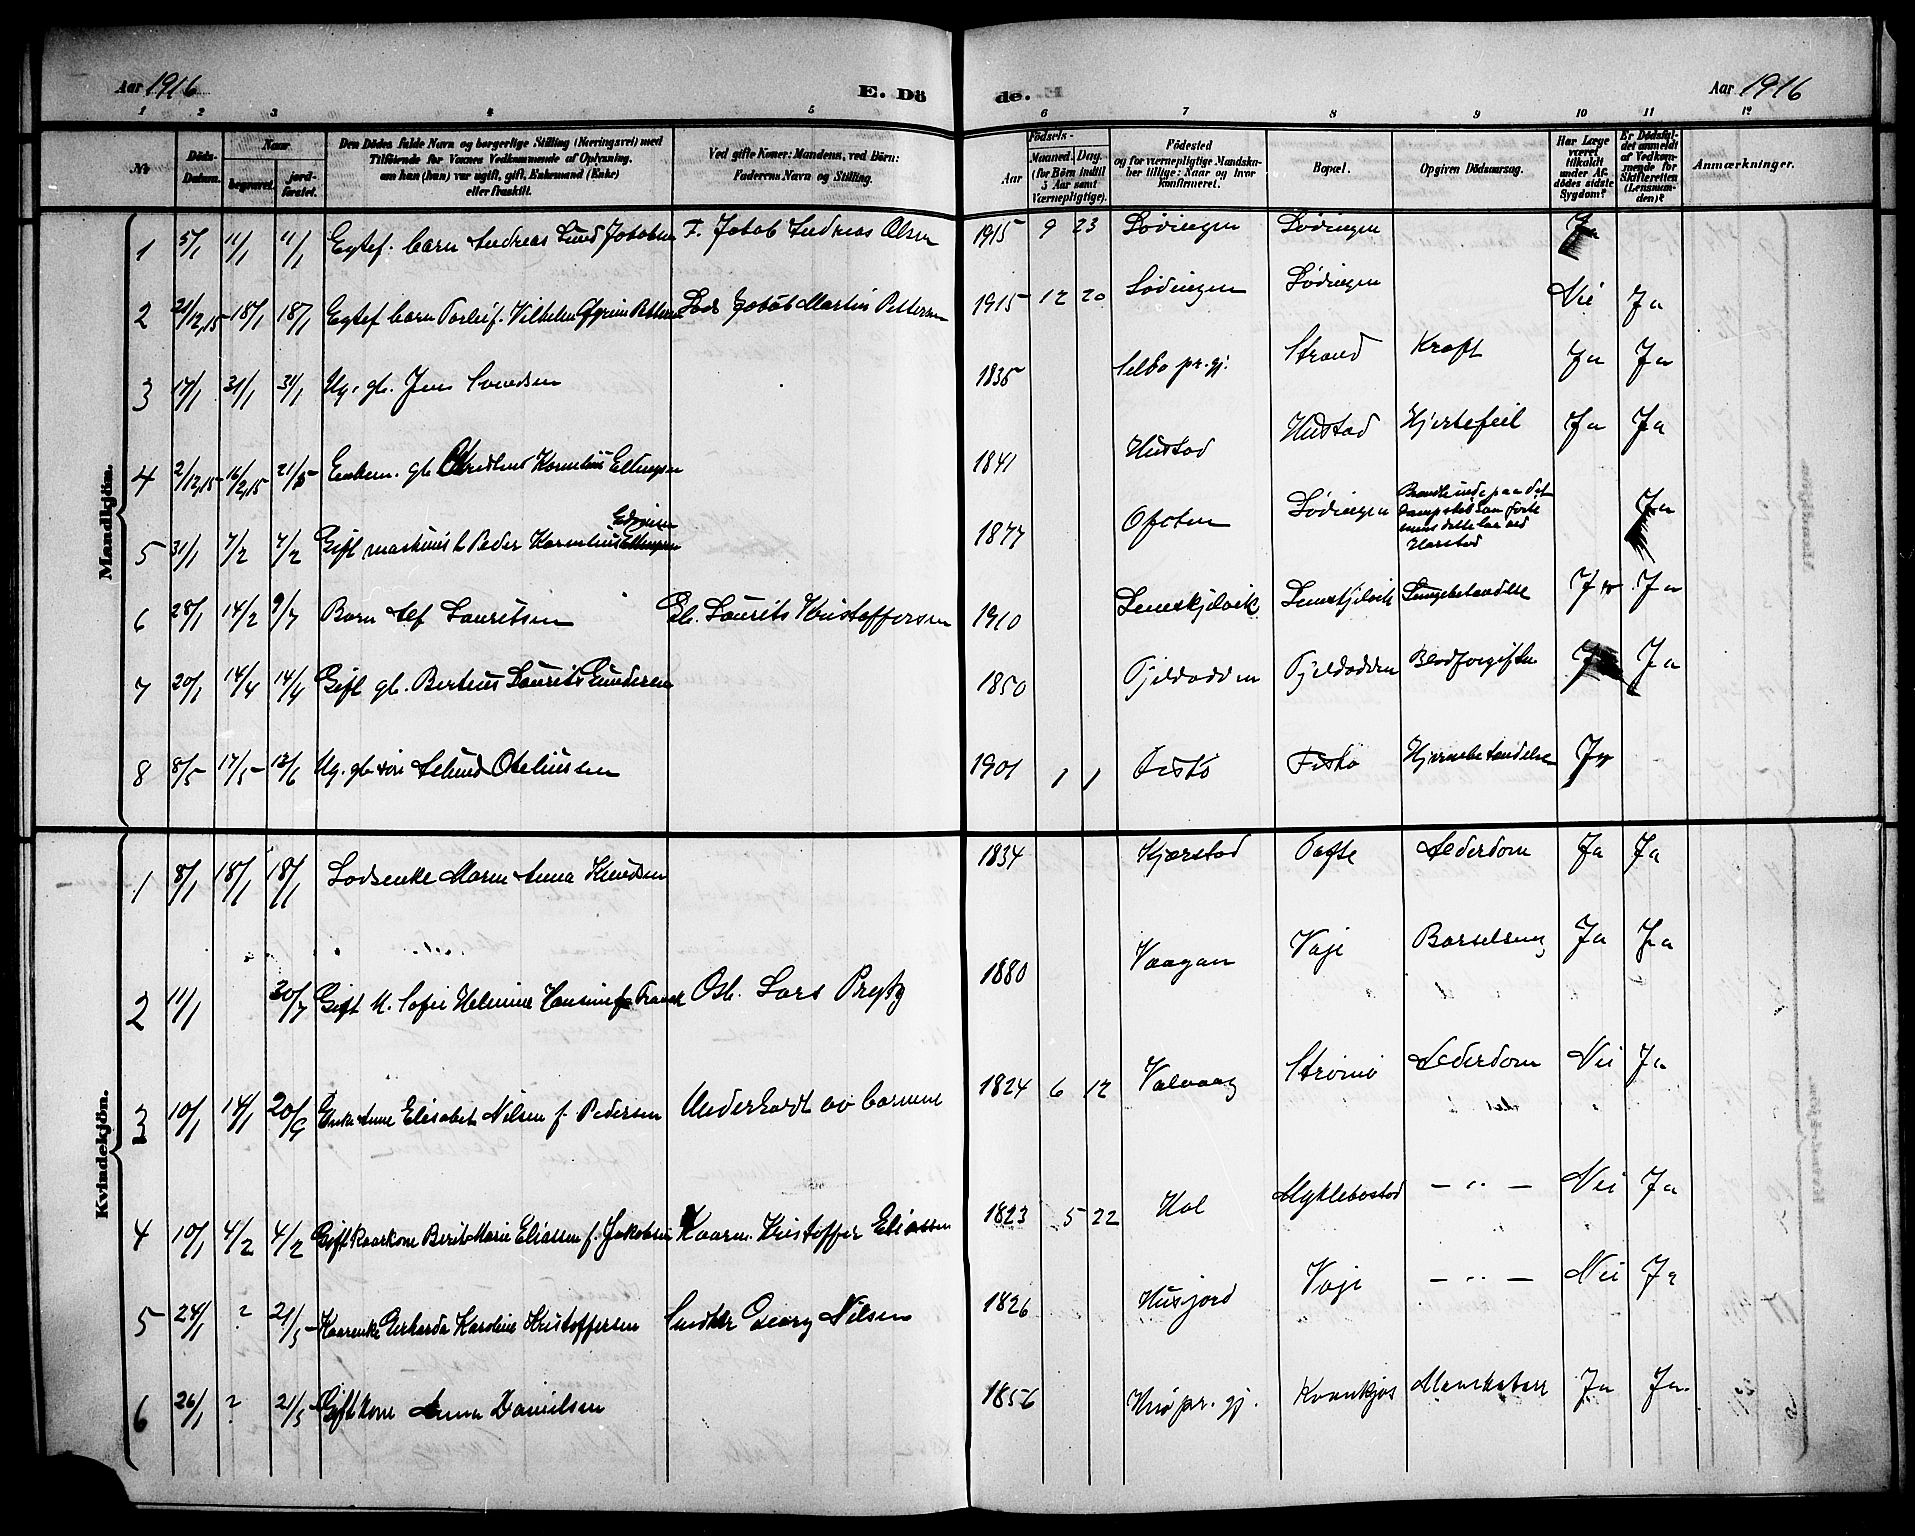 Aar 1916 E. Dö de. Aar 1916
1 2 3 4 5 6 7 8 9 10 11 12
№ Döds-Datum. Naar begravet. jord-fæstet. Den Dödes fulde Navn og borgerlige Stilling (Næringsvei) med Tilföiende for Voxnes Vedkommende af Oplysning, om han (hun) var ugift, gift, Enkemand (Enke) eller fraskilt. Ved gifte Koner: Mandens, ved Börn: Faderens Navn og Stilling. Födsels- Aar Maaned. Dag. (for Börn indtil 5 Aar samt Værnepligtige). Födested og for værnepligtige Mandskaber tillige: Naar og hvor konfirmeret. Bopæl. Opgiven Dödsaarsag. Har Læge været tilkaldt under Afdödes sidste Sygdom? Er Dödsfaldet anmeldt af Vedkommende for Skifteretten (Lensmanden)? Anmærkninger.
Mandkjön.
1 5/1 11/1 11/1 Egtef. barn Andreas Lund Jakobsen F. Jakob Andreas Olsen 1915 9 23 Lødingen Lødingen Ja
2 21/12,15 18/1 18/1 Egtef barn Torleif Vilhelm Pettersen Lods Jakob Martin Pettersen 1915 12 20 Lødingen Lødingen Nei Ja
3 17/1 31/1 31/1 Ug. gb. Jens Svendsen 1835 Selbo pr.gj. Strand Kraft Ja Ja
4 2/12,15 16/12,15 21/5 Enkem. gb. Kornelius Ellingsen 1841 Hustad Hustad Hjertefeil Ja Ja
5 31/1 7/2 7/2 Gift maskinist Peder Kornelius Edvin Ellingsen 1877 Ofoten Lødingen Brandt inde paa det dampskib han førte mens dette laa ved Harstad Ja
6 28/1 14/2 9/7 Barn Alf Lauritsen Gb. Laurits Kristoffersen 1910 Lenvikjelvik Lungebetændelse Ja Ja
7 20/1 14/4 14/4 Gift gb. Berteus Laurits Gundersen 1850 Tjeldodden Tjeldodden Blodforgiftn Ja Ja
8 8/5 17/5 13/6 Ug. gb. søn Otelinssen 1901 1 1 Fiskø Fiskø Hjernebetændelse Ja
Kvindekjön.
1 8/1 18/1 18/1 Lodsenke Maren Anna Knudsen 1834 Kjærstad Tofte Alderdom Ja Ja
2 11/1 30/7 Gift K. Sofie Helmine Hansine Os. Lars Prestø 1880 Vaagan Vaje Barselseng Ja Ja
3 10/1 14/1 20/9 Enke Anne Elisabet Nilsen f. Pedersen Underholdt av barnene 1824 6 12 Valvaag Strømø Alderdom Nei Ja
4 10/1 4/2 4/2 Gift kaarkone Berit Marie Eliassen f. Jakobsen Kaarm. Kristoffer Eliassen 1823 5 22 Hol Myklebostad — " — Nei Ja
5 24/1 ? 21/5 Kaarenke Gerharda Karoline Kristoffersen Georg Nilsen 1826 Husjord Vaje — " — Nei Ja
6 26/1 ? 21/5 Gift kone Anna Danielsen 1856 pr. gj. Kvankjos Ja Ja